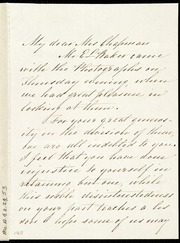 My dear Mrs Chapman
Mr E L Baker came
with the Photographs on
Thursday evening when
we had great pleasure in
looking at them.
For your great generos-
ity in the decision of them,
we are all indebted to you.
I feel that you have done
injustice to yourself in
retaining but one, while
this noble disinterestedness
on your part teaches a les-
son I hope some of us may